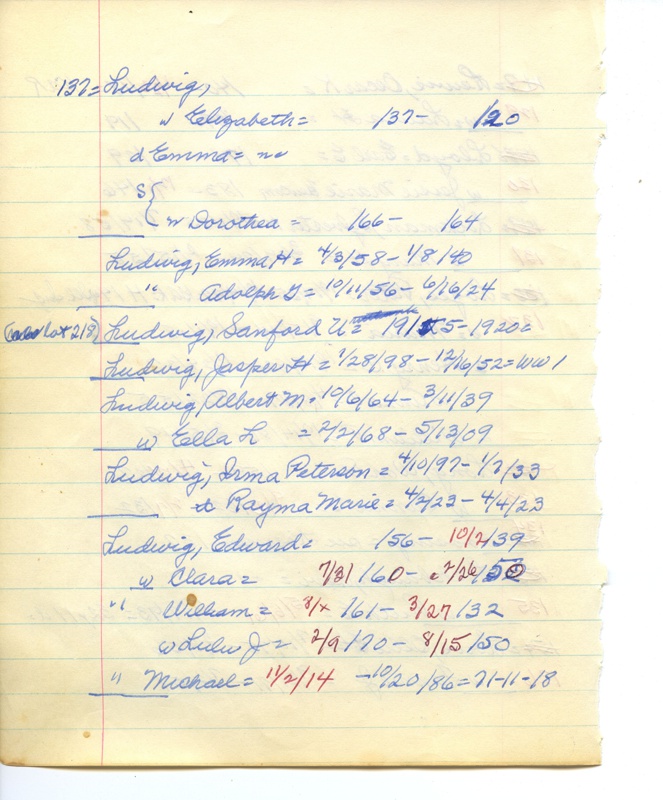 137= Ludwig,
w Elizabeth= /37- /20
d Emma=
S{ w Dorothea = /66- /64
Ludwig, Emma H= 4/3/58-1/8/40
" Adolph G=10/11/56-6/16/24
Lot 218) Ludwig, Sanford U= 1915-1920=
Ludwig, Jasper H=1/28/98-12/16/52=WW1
Ludwig, Albert M=10/6/64-3/11/39
w Ella L =2/2/68-5/13/09
Ludwig, Irma Peterson=4/10/97-1/7/33
Rayma Marie=4/2/23-4/4/23
Ludwig, Edward= /56-10/2/39
w Clara= 7/31/60-2/26/50
" William= /61-3/27/32
w Lulu J= 2/9/70-8/15/50
" Michael=11/2/14 -10/20/86=71-11-18